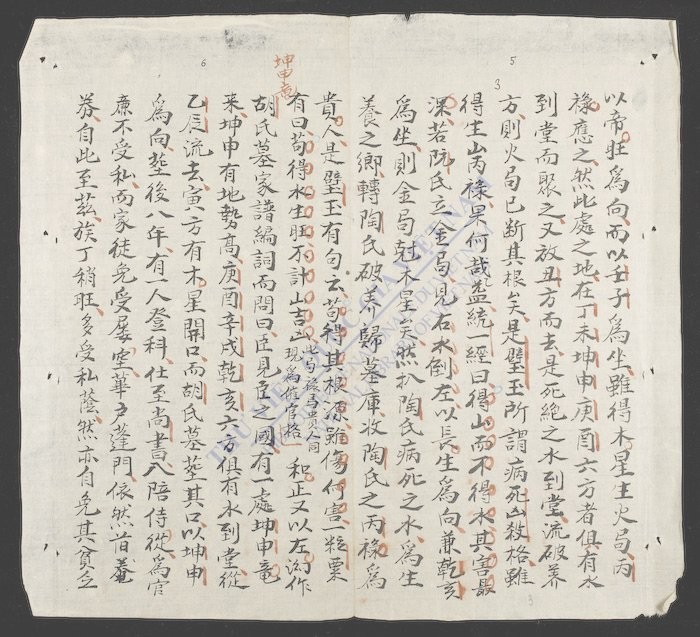 5
3
以帝旺為向而以壬子為坐雖得木星生火局丙
祿應之然此處之地在丁未坤申庚酉六方者俱有水
到堂而聚之又放丑方而去是死絕之水到堂流破养
方則火局已断其根矣是璧玉所謂病死山殺格雖
得生山丙祿呆何哉盖統一經曰得山而不得水其害最
深若阮氏立金局見右水倒左以長生為向兼乾亥
為坐則金局尅木星矣然扒陶氏病死之水為生
養之鄉轉陶氏破养歸墓庫收陶氏之丙祿為
6
坤申篇
貴人是璧玉有句云苟得其根源雖傷何害一粒粟
有曰苟得水生旺不計山吉凶 此与祿馬貴人同 現為催官格 和正又以左泑作
胡氏墓家譜編詞而問曰臣見臣之國有一處坤申竜
來坤申有地勢高庚酉辛戌乾亥六方俱有水到堂從
乙辰流去寅方有木星開口而胡氏墓塟其口以坤申
為向塟後八年有一人登科仕至尚書八陪侍從為官
廉不受私而家徒免受屡空華户蓬門依然昔菴
券自此至茲族丁稍旺多受私蔭然亦自免其貧乏
THƯ VIỆN QUỐC GIA VIỆT NAM
BIBLIOTHÈQUE NATIONALE DU VIETNAM
NATIONAL LIBRARY OF VIETNAM
3